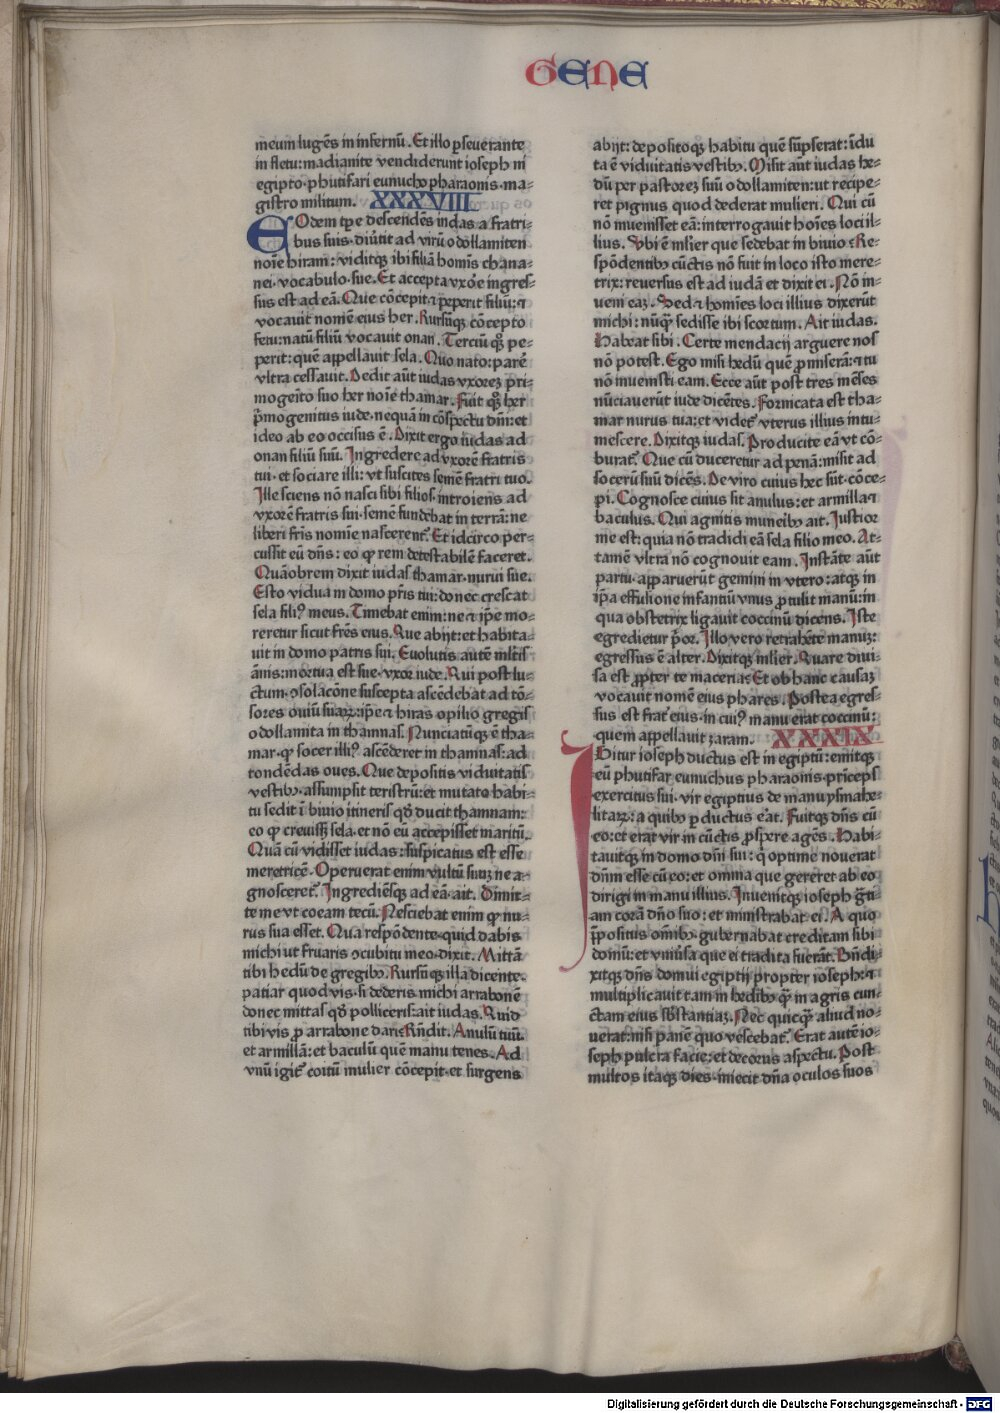 GENE
meum lugēs in infernū. Et illo ꝑseverante
in fletu: madianite vendiderunt ioseph in
egipto phutifari eunucho pharaonis· ma-
gistro militum. XXXVIII
EOdem tꝑe descendēs iudas a fratri-
bus suis· divītit ad virū odollamiten
noīe hiram: viditqꝫ ibi filiā homīs chana-
nei· vocabulo· sue. Et accepta vxoē ingres-
sus est ad eā. Que cōcepit ⁊ peperit filiū: ⁊
vocavit nomē eius her. Rursūqꝫ cōcepto
fetu: natū filiū vocavit onan. Terciū qꝫ pe-
perit: quē appellavit sela. Quo nato: parē
vltra cessavit. Dedit aūt iudas vxorez pri-
mogeīto suo her noīe thamar. Fuit qꝫ her
p̄mogenitus iude· nequā in cōspectu dnī: et
ideo ab eo occisus ē. Dixit ergo iudas ad
onan filiū suū. Ingredere ad vxorē fratris
tui· et sociare illi: vt suscites semē fratri tuo.
Ille sciens nō nasci sibi filios· introiens ad
vxorē fratris sui· semē fundebat in terrā: ne
liberi fr̄is nomīe nascerent᷒. Et idcirco per-
cussit eū dn̄s: eo ꝙ rem detestabilē faceret.
Quāobrem dixit iudas thamar· nurui sue.
Esto vidua in domo pr̄is tui: donec crescat
sela fili᷒ meus. Timebat enim: ne ⁊ ip̄e mo-
reretur sicut fr̄es eius. Que abijt: et habita-
vit in domo patris sui. Evolutis autē mltis
ānis: mortua est sue· vxor iude. Qui post lu-
ctum· ꝯsolacōne suscepta ascēdebat ad tō-
sores oviū suaꝝ: ip̄e ⁊ hiras opilio gregis
odollamita in thamnas. Nunciatūqꝫ ē tha-
mar· ꝙ socer illi᷒ ascēderet in thamnas: ad
tondēdas oves. Que depositis viduitatis
vestibꝫ· assumpsit teristrū: et mutato habi-
tu sedit ī bivio itineris qd̄ ducit thamnam:
eo ꝙ crevissꝫ sela· et nō eū accepisset maritū.
Quā cū vidisset iudas: suspicatus est esse
meretricē. Operuerat enim vultū suuꝫ ne a-
gnosceret᷒. Ingrediēsqꝫ ad eā· ait. Dimit-
te me vt coeam tecū. Nesciebat enim ꝙ nu-
rus sua esset. Qua respōdente· quid dabis
michi ut fruaris ꝯcubitu meo· dixit. Mittā
tibi hedū de gregibꝫ. Rursūqꝫ illa dicente·
patiar quod vis· si dederis michi arrabonē
donec mittas qd̄ polliceris: ait iudas. Quid
tibi vis ꝑ arrabone dari· Rn̄dit. Anulū tuū·
et armillā: et baculū quē manu tenes. Ad
vnū igit᷒ coitū mulier cōcepit· et surgens
abijt: depositoqꝫ habitu quē sūpserat: īdu
ta ē viduitatis vestibꝫ. Misit aūt iudas he-
dū per pastorez suū odollamiten: ut recipe-
ret pignus quod dederat mulieri. Qui cū
nō invenisset eā: interrogavit hoīes loci il-
lius. Vbi ē mlier que sedebat in bivio· Re-
spōdentibꝫ cūctis nō fuit in loco isto mere-
trix: reversus est ad iudā et dixit ei. Nō in-
veni eaꝫ. Sed ⁊ homīes loci illius dixerūt
michi: nūqꝫ sedisse ibi scortum. Ait iudas.
Habeat sibi. Certe mendacij arguere nos
nō potest. Ego misi hedū quē ꝓmiserā: ⁊ tu
nō invenisti eam. Ecce aūt post tres mēses
nūciaverūt iude dicētes. Fornicata est tha-
mar nurus tua: et videt᷒ vterus illius intu-
mescere. Dixitqꝫ iudas. Producite eā vt cō-
burat᷒. Que cū duceretur ad penā: misit ad
socerū suū dicēs. De viro cuius hec sūt· cōce-
pi. Cognosce cuius sit anulus: et armilla ⁊
baculus. Qui agnitis muneribꝫ ait. Iustior
me est: quia nō tradidi eā sela filio meo. At-
tamē vltra nō cognovit eam. Instāte aūt
partu· apparuerūt gemini in vtero: atqꝫ in
ip̄a effusione infantiū vnus ꝓtulit manū: in
qua obstetrix ligavit coccinū dicens. Iste
egredietur p̄or. Illo vero retrahēte manuꝫ:
egressus ē alter. Dixitqꝫ mlier. Quare divi-
sa est ꝓpter te maceria: Et ob hanc causaꝫ
vocavit nomē eius phares. Postea egres-
sus est frat᷒ eius· in cui᷒ manu erat coccinū:
quem appellavit zaram. XXXIX
IGitur ioseph ductus est in egiptū: emitqꝫ
eū phutifar eunuchus pharaonis· prīceps
exercitus sui· vir egiptius de manu ysmahe-
litaꝝ: a quibꝫ ꝑductus erat. Fuitqꝫ dn̄s cū
eo: et erat vir in cūctis ꝓspere agēs. Habi-
tavitqꝫ in domo dnī sui: q̄ optime noverat
dn̄m esse cū eo: et omnia que gereret ab eo
dirigi in manu illius. Invenitqꝫ ioseph gr̄ti-
am corā dn̄o suo: et ministrabat ei. A quo
p̄positus om̄ibꝫ· gubernabat creditam sibi
domū: et vniūsa que ei tradita fuerāt. Bn̄di-
xitqꝫ dn̄s domui egiptij propter ioseph: ⁊
multiplicavit tam in hedibꝫ qꝫ in agris cun-
ctam eius sb̄stantiaꝫ. Nec quicqꝫ aliud no-
verat: nisi panē quo vescebat᷒. Erat autē io-
seph pulcra facie: et decorus aspectu. Post
multos itaqꝫ dies· iniecit dn̄a oculos suos
Digitalisierung gefördert durch die Deutsche Forschungsgemeinschaft - DFG